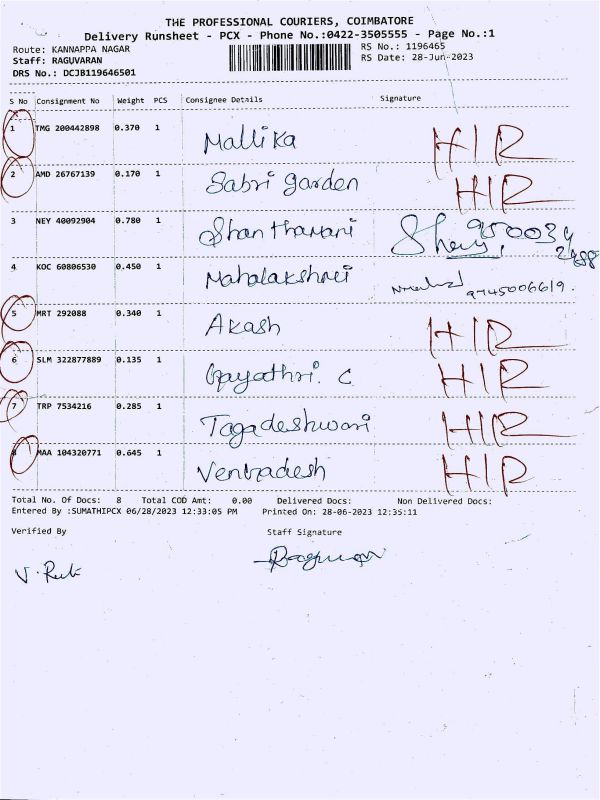 THE PROFESSIONAL COURIERS, COIMBATORE
Delivery Runsheet - PCX - Phone No.:0422-3505555 - Page No.:1
Route: KANNAPPA NAGAR RS No.: 1196465
Staff: RAGUVARAN RS Date: 28-Jun-2023
DRS No.: DCJB119646501
S No Consignment No Weight PCS Consignee Details Signature
1 TMG 200442898 0.370 1 Mallika H/R
2 AMD 26767139 0.170 1 Sabri garden H/R
3 NEY 40092904 0.780 1 Shanthamani
4 KOC 60806530 0.450 1 Mahalakshmi 9745006619.
5 MRT 292088 0.340 1 Akash H/R
6 SLM 322877889 0.135 1 Gayathri. C H/R
7 TRP 7534216 0.285 1 Jagadeshwari H/R
8 MAA 104320771 0.645 1 Venkadesh H/R
Total No. Of Docs: 8 Total COD Amt: 0.00 Delivered Docs: Non Delivered Docs:
Entered By :SUMATHIPCX 06/28/2023 12:33:05 PM Printed On: 28-06-2023 12:35:11
Verified By Staff Signature